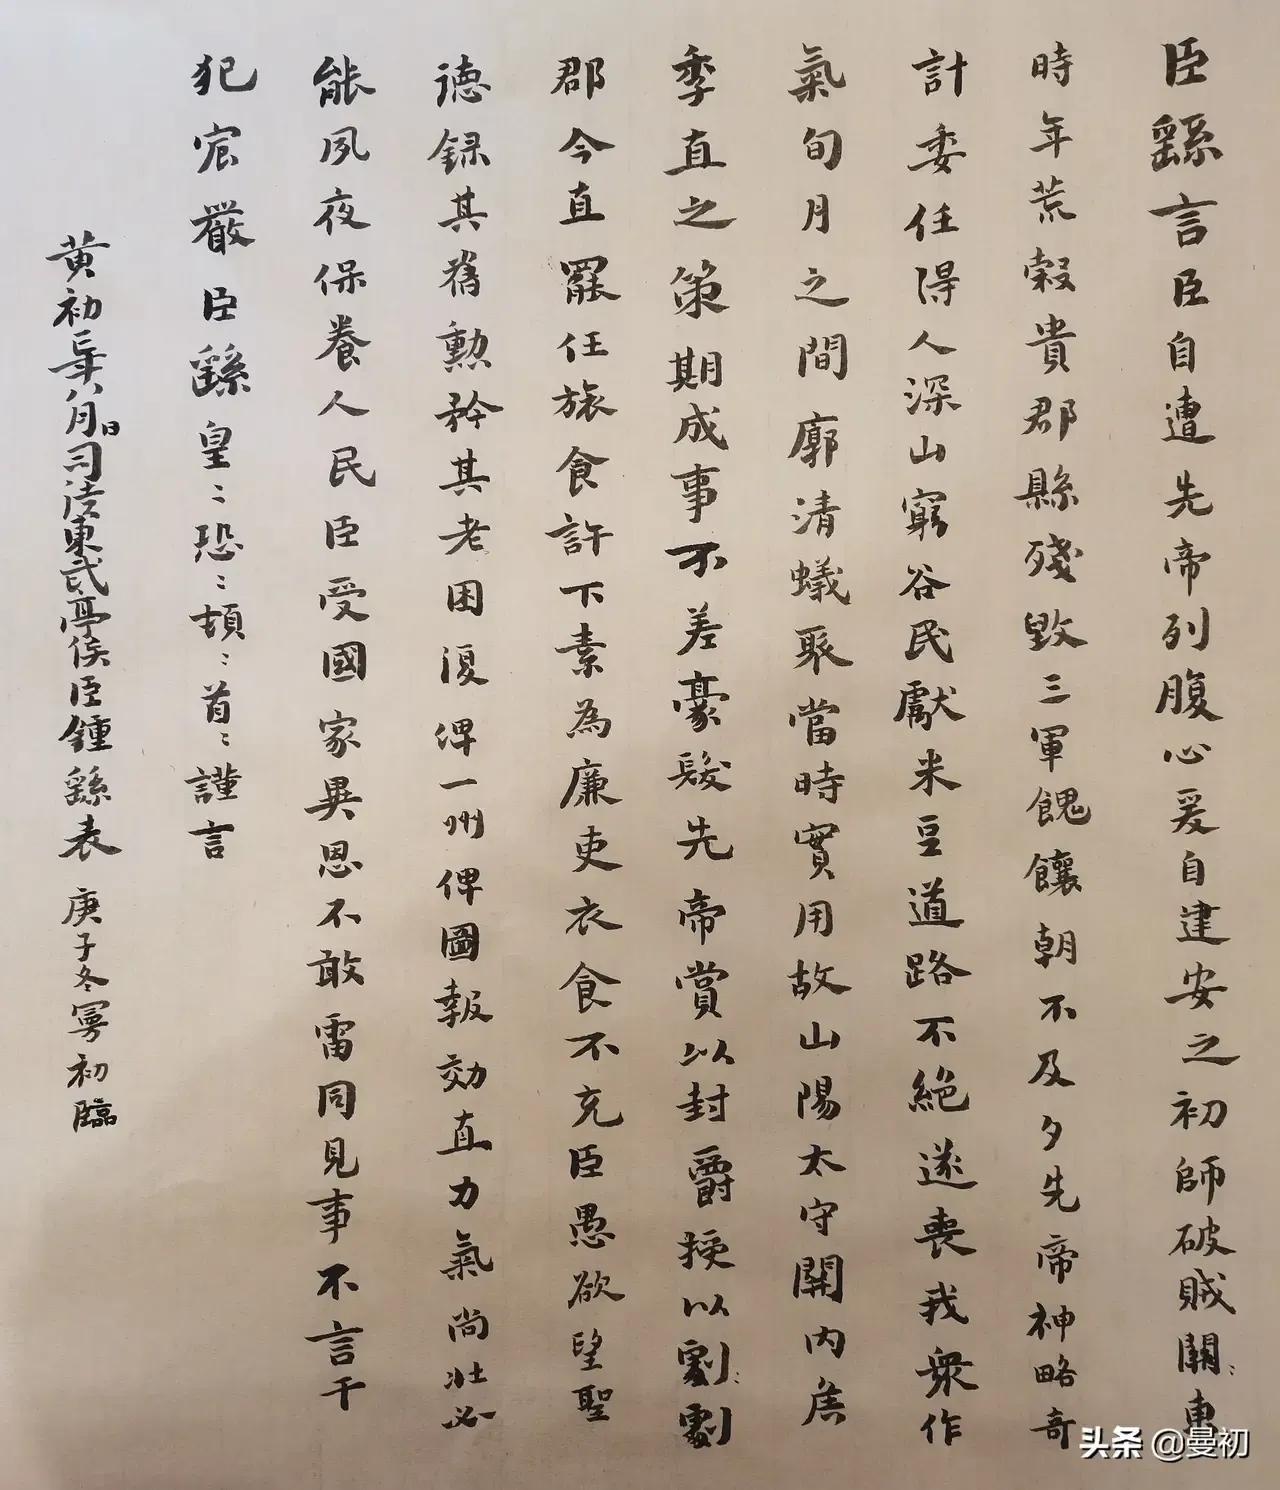 臣繇言臣自遭先帝列腹心爰自建安之初師破賊關:東
時年荒穀貴郡縣殘毀三軍餽饟朝不及夕先帝神略奇
計委任得人深山窮谷民獻米豆道路不絕遂喪我衆作
氣旬月之間廓清蟻聚當時實用故山陽太守關內矦
季直之策期成事不差豪髮先帝賞以封爵授以劇:劇
郡今直罷任旅食許下素為廉吏衣食不充臣愚欲望聖
德録其舊勳矜其老困復俾一州俾圖報効直力氣尚壯必
能夙夜保養人民臣受國家異恩不敢雷同見事不言干
犯宸嚴臣繇皇:恐:頓:首:謹言
黃初三年八月日司徒東武亭侯臣鍾繇表 庚子冬曼初臨
头条 @曼初